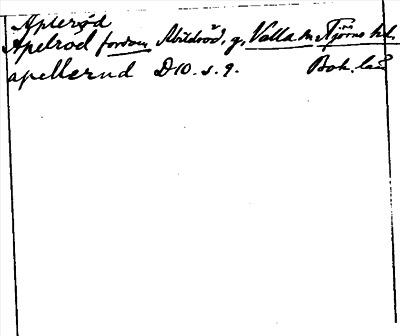 Aplerød
Apelröd fordom Abildröd, g, Valla sn Tjörns hd.
apellerud D10. s. 9. Boh. län